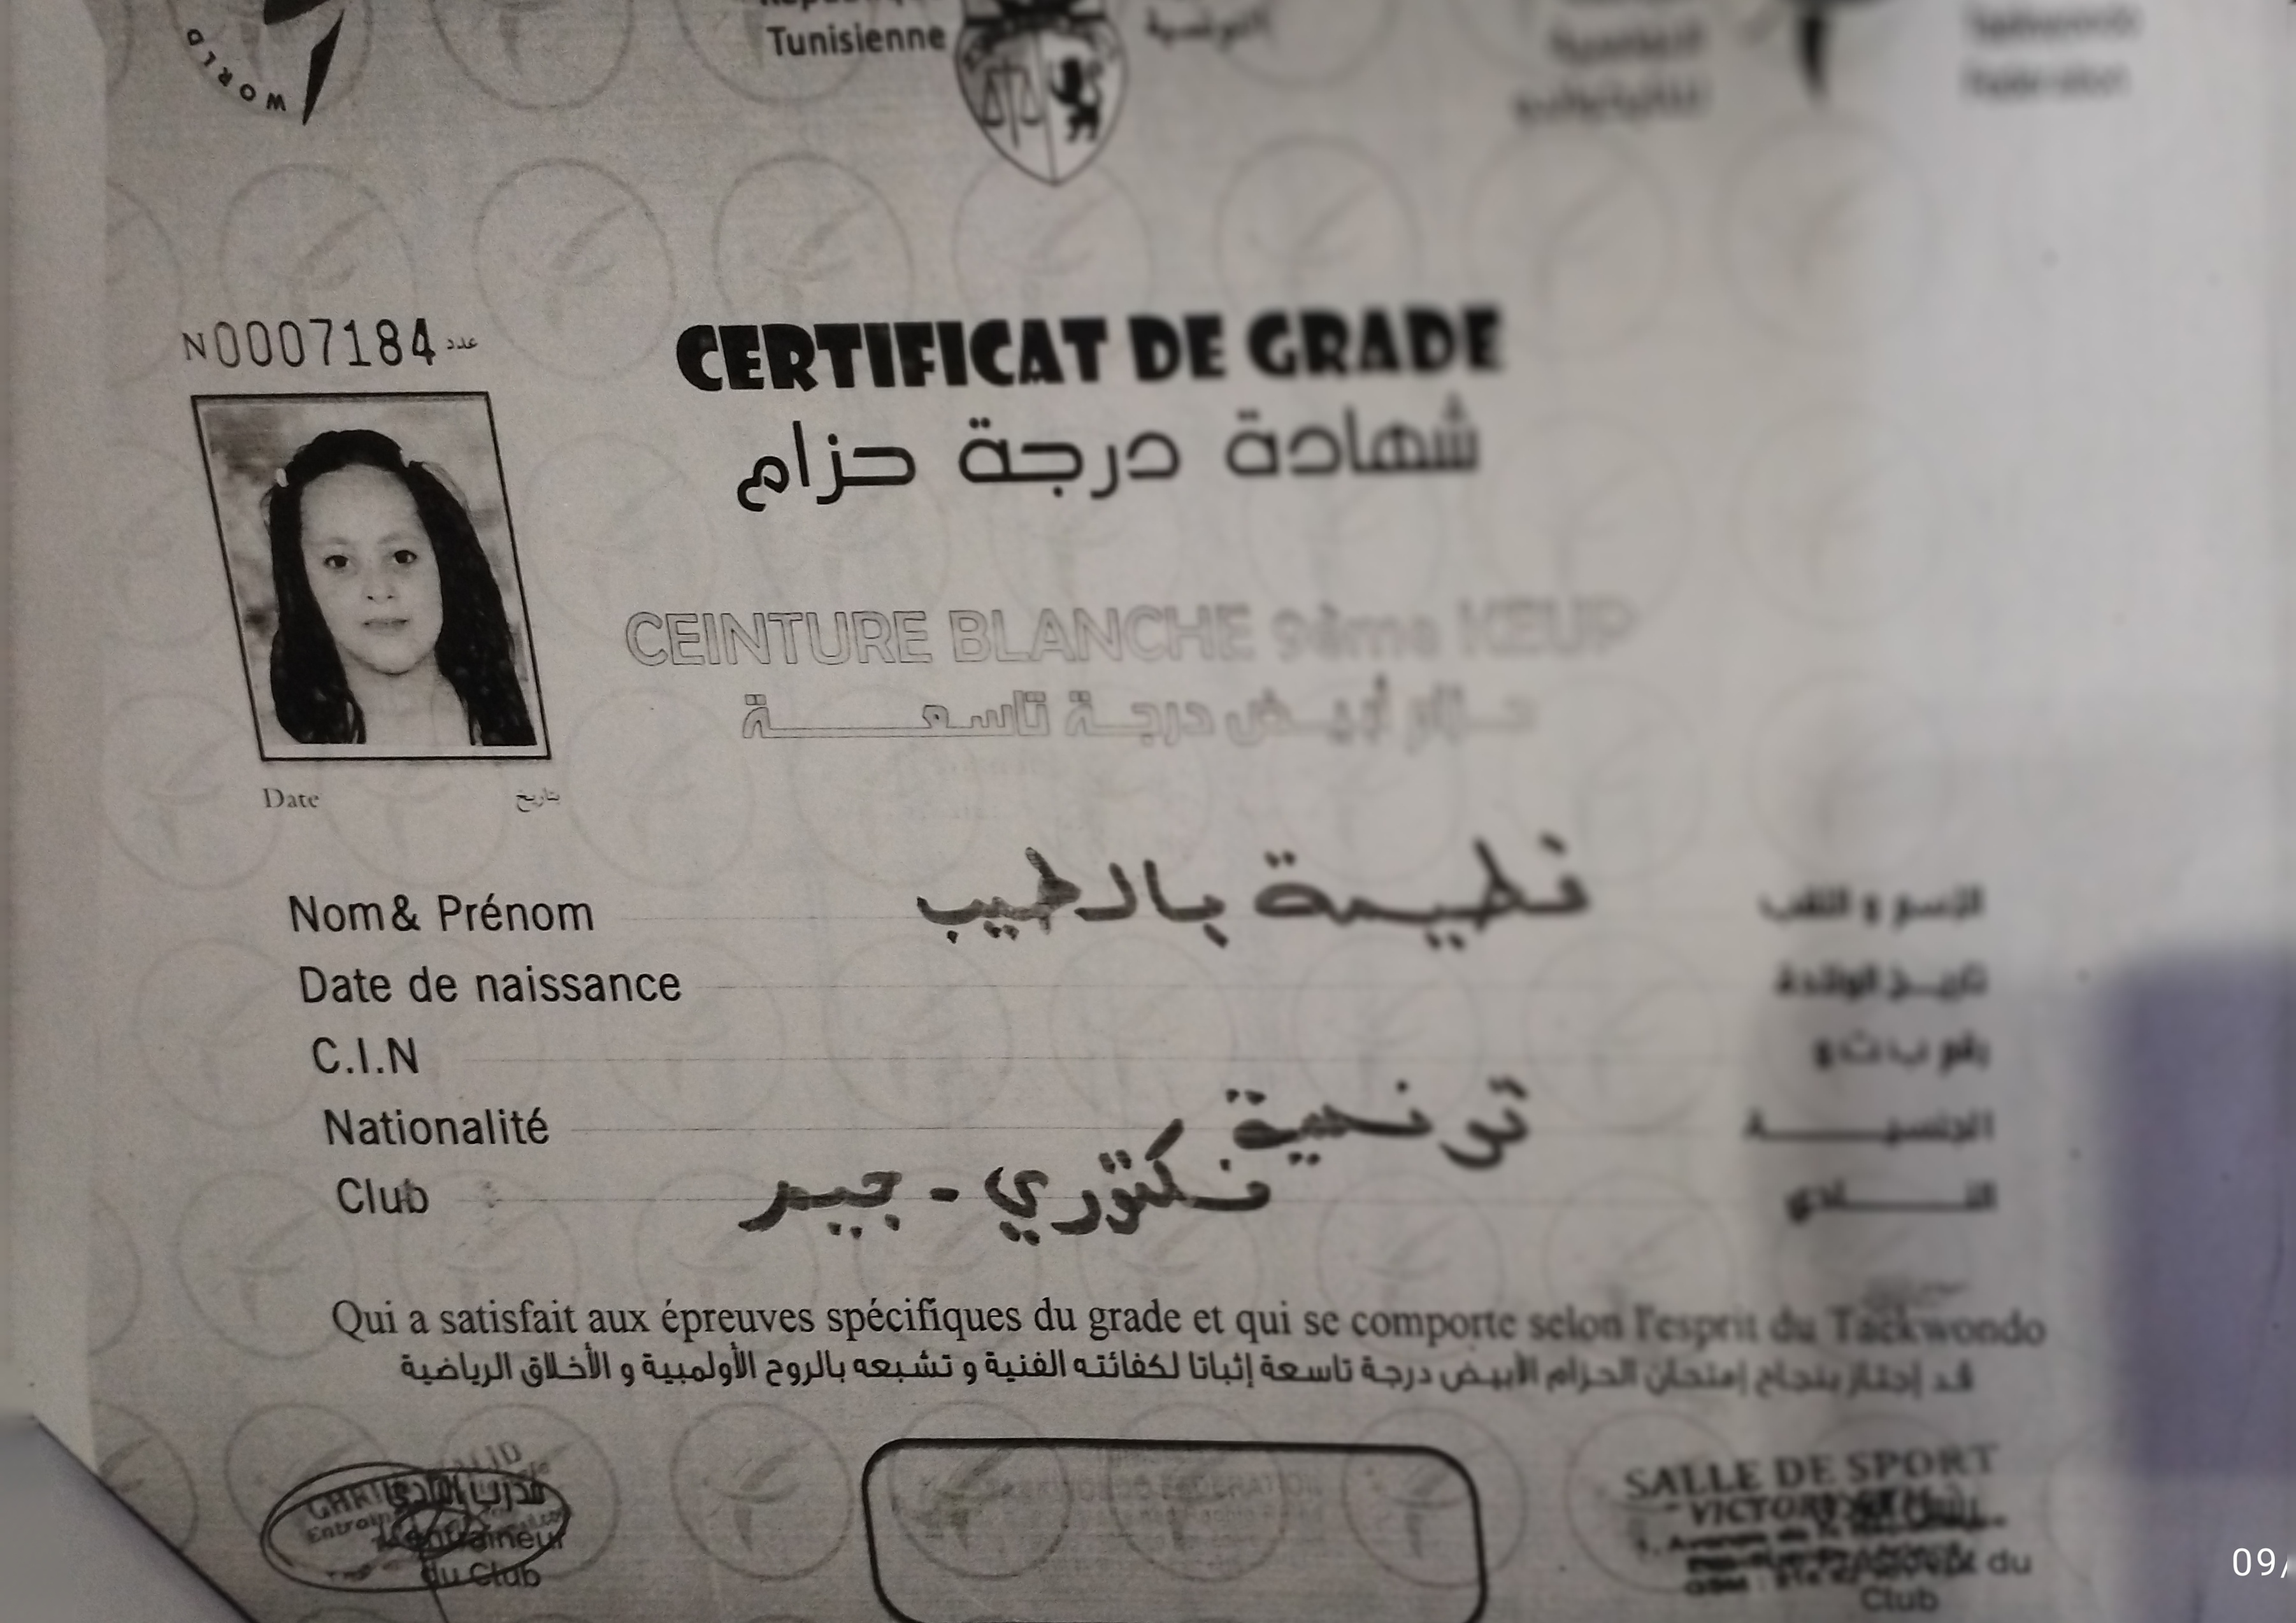 WORLD
Tunisienne
التونسية
N0007184 عدد
CERTIFICAT DE GRADE
شهادة درجة حزام
CEINTURE BLANCHE 9ème KEUP
حزام أبيض درجة تاسعة
Date تاريخ
Nom& Prénom فطيمة بالطيب الإسم و اللقب
Date de naissance تاريخ الولادة
C.I.N رقم ب ت و
Nationalité تونسية الجنسية
Club فكتوري - جيم النادي
Qui a satisfait aux épreuves spécifiques du grade et qui se comporte selon l'esprit du Taekwondo
قد إجتاز بنجاح إمتحان الحزام الأبيض درجة تاسعة إثباتا لكفائته الفنية و تشبعه بالروح الأولمبية و الأخلاق الرياضية
مدرب النادي
L'entraineur
du Club
SALLE DE SPORT
VICTORY GYM
du
Club
09/